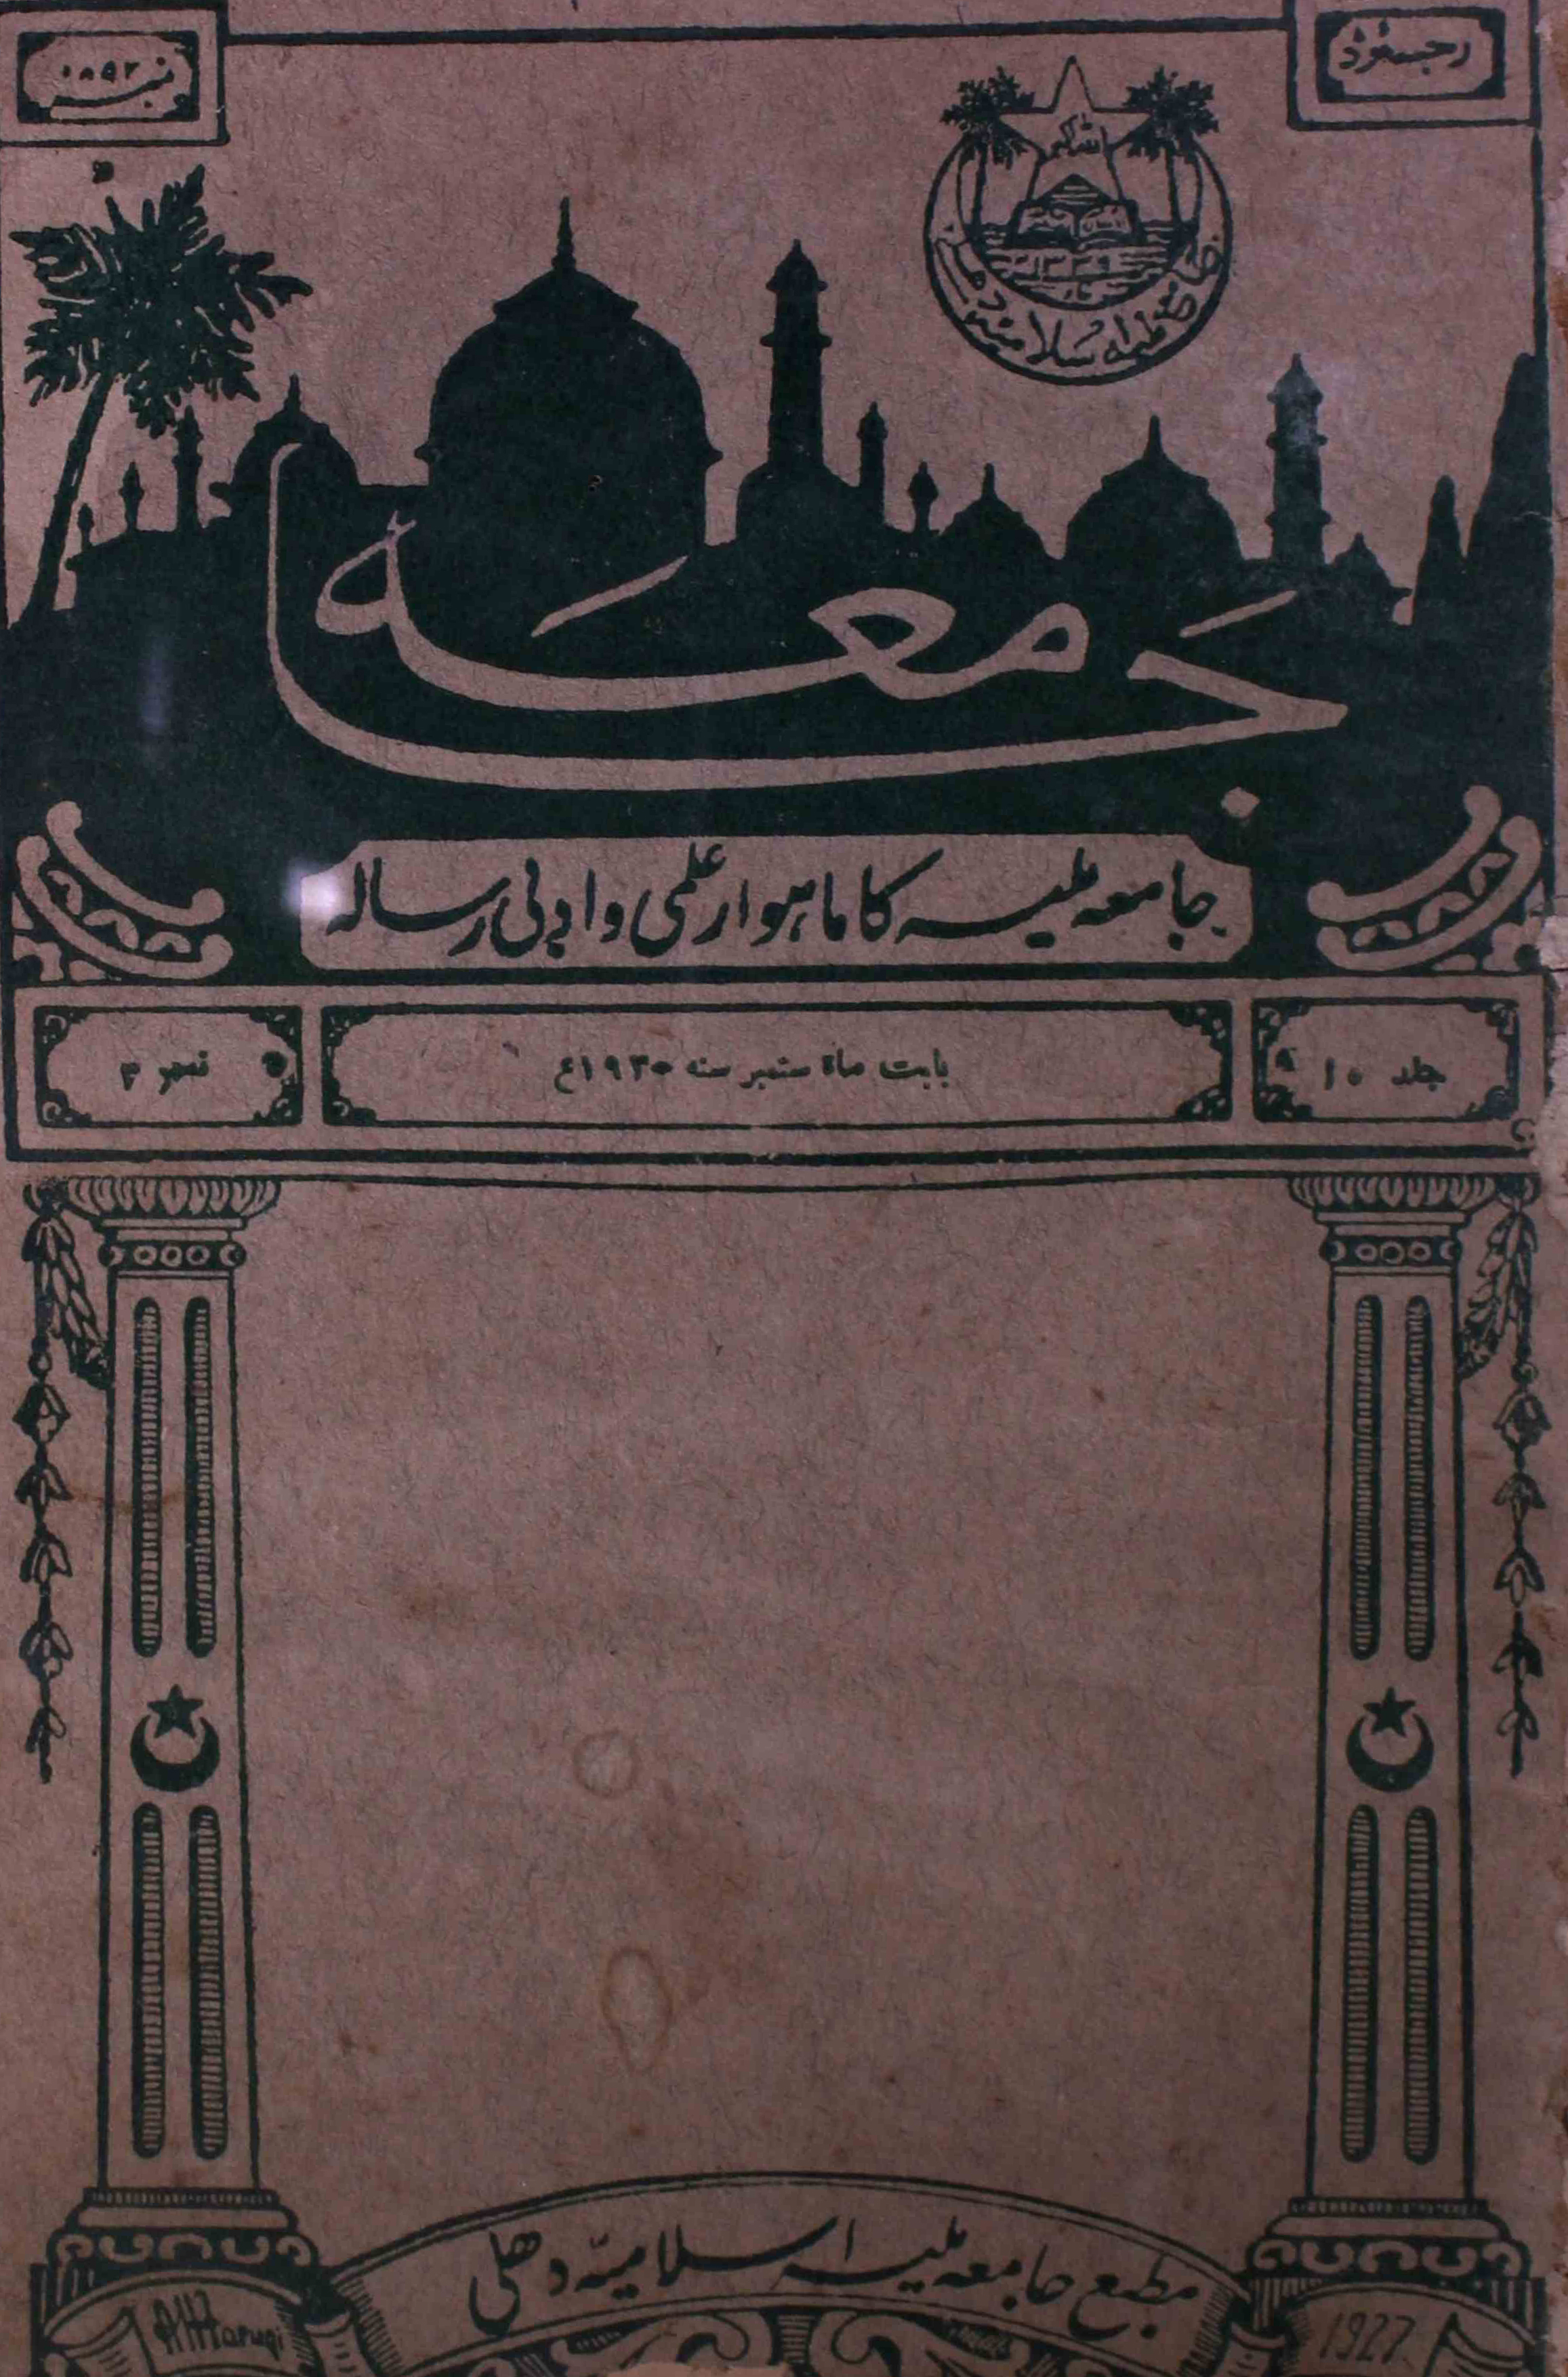 رجسٹرڈ
نمبر ۱۸۹۲
اللہ اکبر
۱۳۳۹
جامعہ ملیہ اسلامیہ دہلی
جامعہ
جامعہ ملیہ کا ماہوار علمی و ادبی رسالہ
جلد ۱۰
بابت ماہ ستمبر سنہ ۱۹۳۰ع
نمبر ۳
مطبع جامعہ ملیہ اسلامیہ دھلی
1927